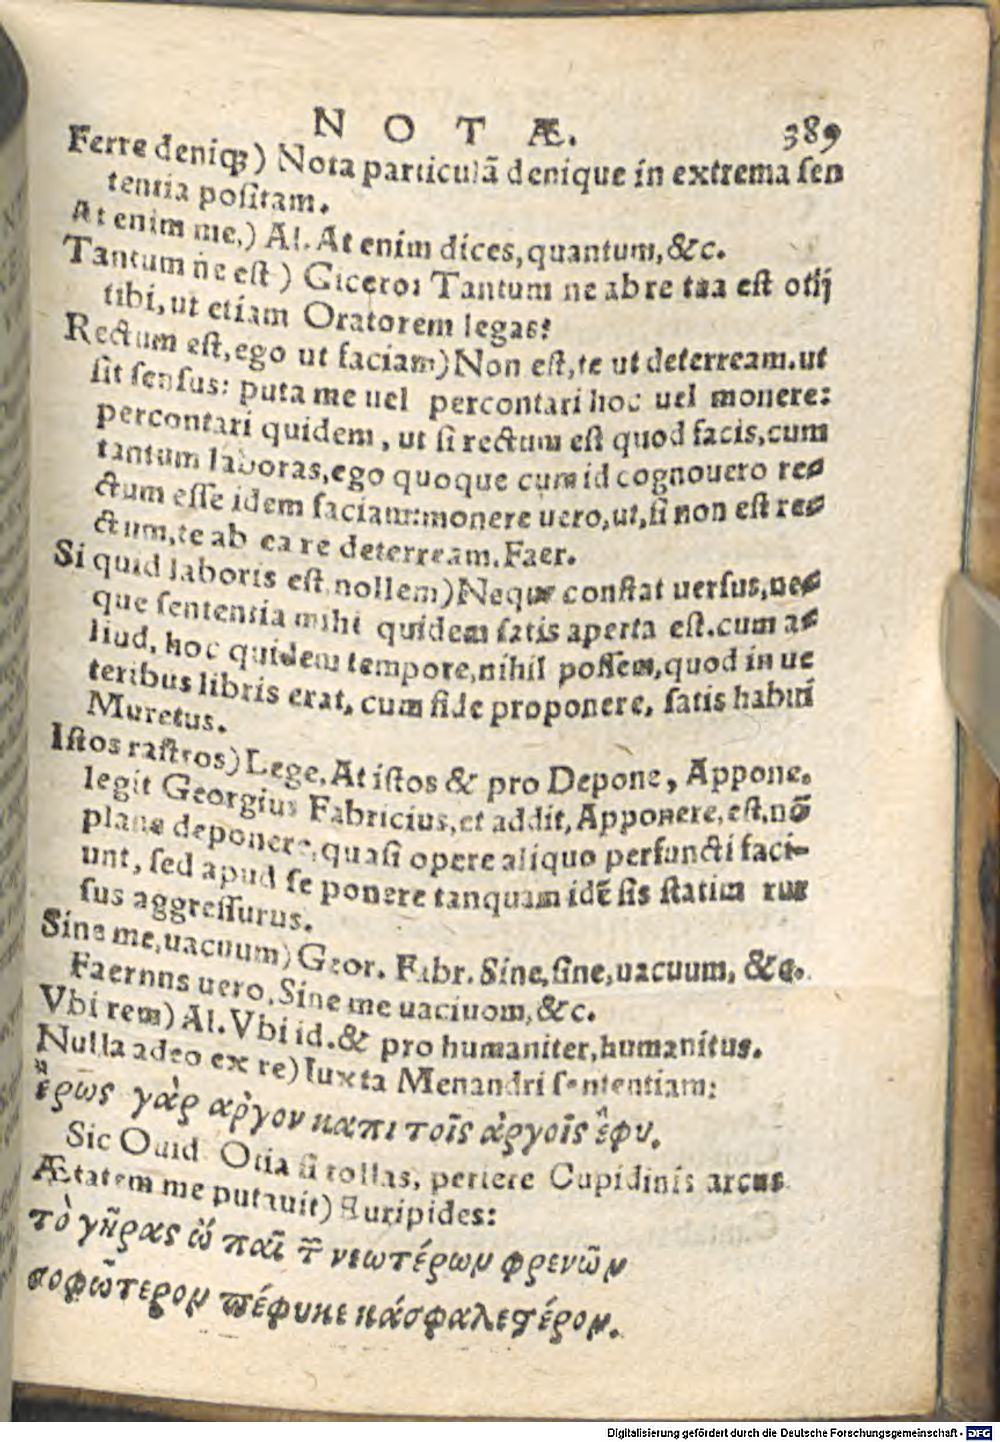 NOTÆ. 389
Ferre deniq;) Nota particulã denique in extrema sen
tentia positam.
At enim me,) Al. At enim dices, quantum, &c.
Tantum ne est) Cicero: Tantum ne abre tua est otij
tibi, ut etiam Oratorem legas?
Rectum est, ego ut faciam) Non est, te ut deterream. ut
sit sensus: puta me uel percontari hoc uel monere:
percontari quidem, ut si rectum est quod facis, cum
tantum laboras, ego quoque cum id cognouero re-
ctum esse idem faciam: monere uero, ut, si non est re-
ctum, te ab ea re deterream. Faer.
Si quid laboris est nollem) Neque constat uersus, ne-
que sententia mihi quidem satis aperta est. cum a-
liud, hoc quidem tempore, nihil possem, quod in ue
teribus libris erat, cum fide proponere, satis habui
Muretus.
Istos rastros) Lege. At istos & pro Depone, Appone.
legit Georgius Fabricius, et addit, Apponere, est, nõ
plane deponere, quasi opere aliquo perfuncti faci-
unt, sed apud se ponere tanquam idẽ sis statim rur
sus aggressurus.
Sine me, uacuum) Geor. Fabr. Sine, sine, uacuum, &c.
Faernns uero. Sine me uaciuom, &c.
Vbi rem) Al. Vbi id. & pro humaniter, humanitus.
Nulla adeo ex re) Iuxta Menandri sententiam:
ἔρως γὰρ αῤγον καπι τοῖς ἀργοῖς ἔφυ.
Sic Ouid Otia si tollas, periere Cupidinis arcus
Ætatem me putauit) Euripides:
τὸ γῆρας ὦ παῖ τ̃ νεωτέρων φρενῶν
σοφώτερον πέφυκε κἀσφαλεςέρον.
Digitalisierung gefördert durch die Deutsche Forschungsgemeinschaft - DFG